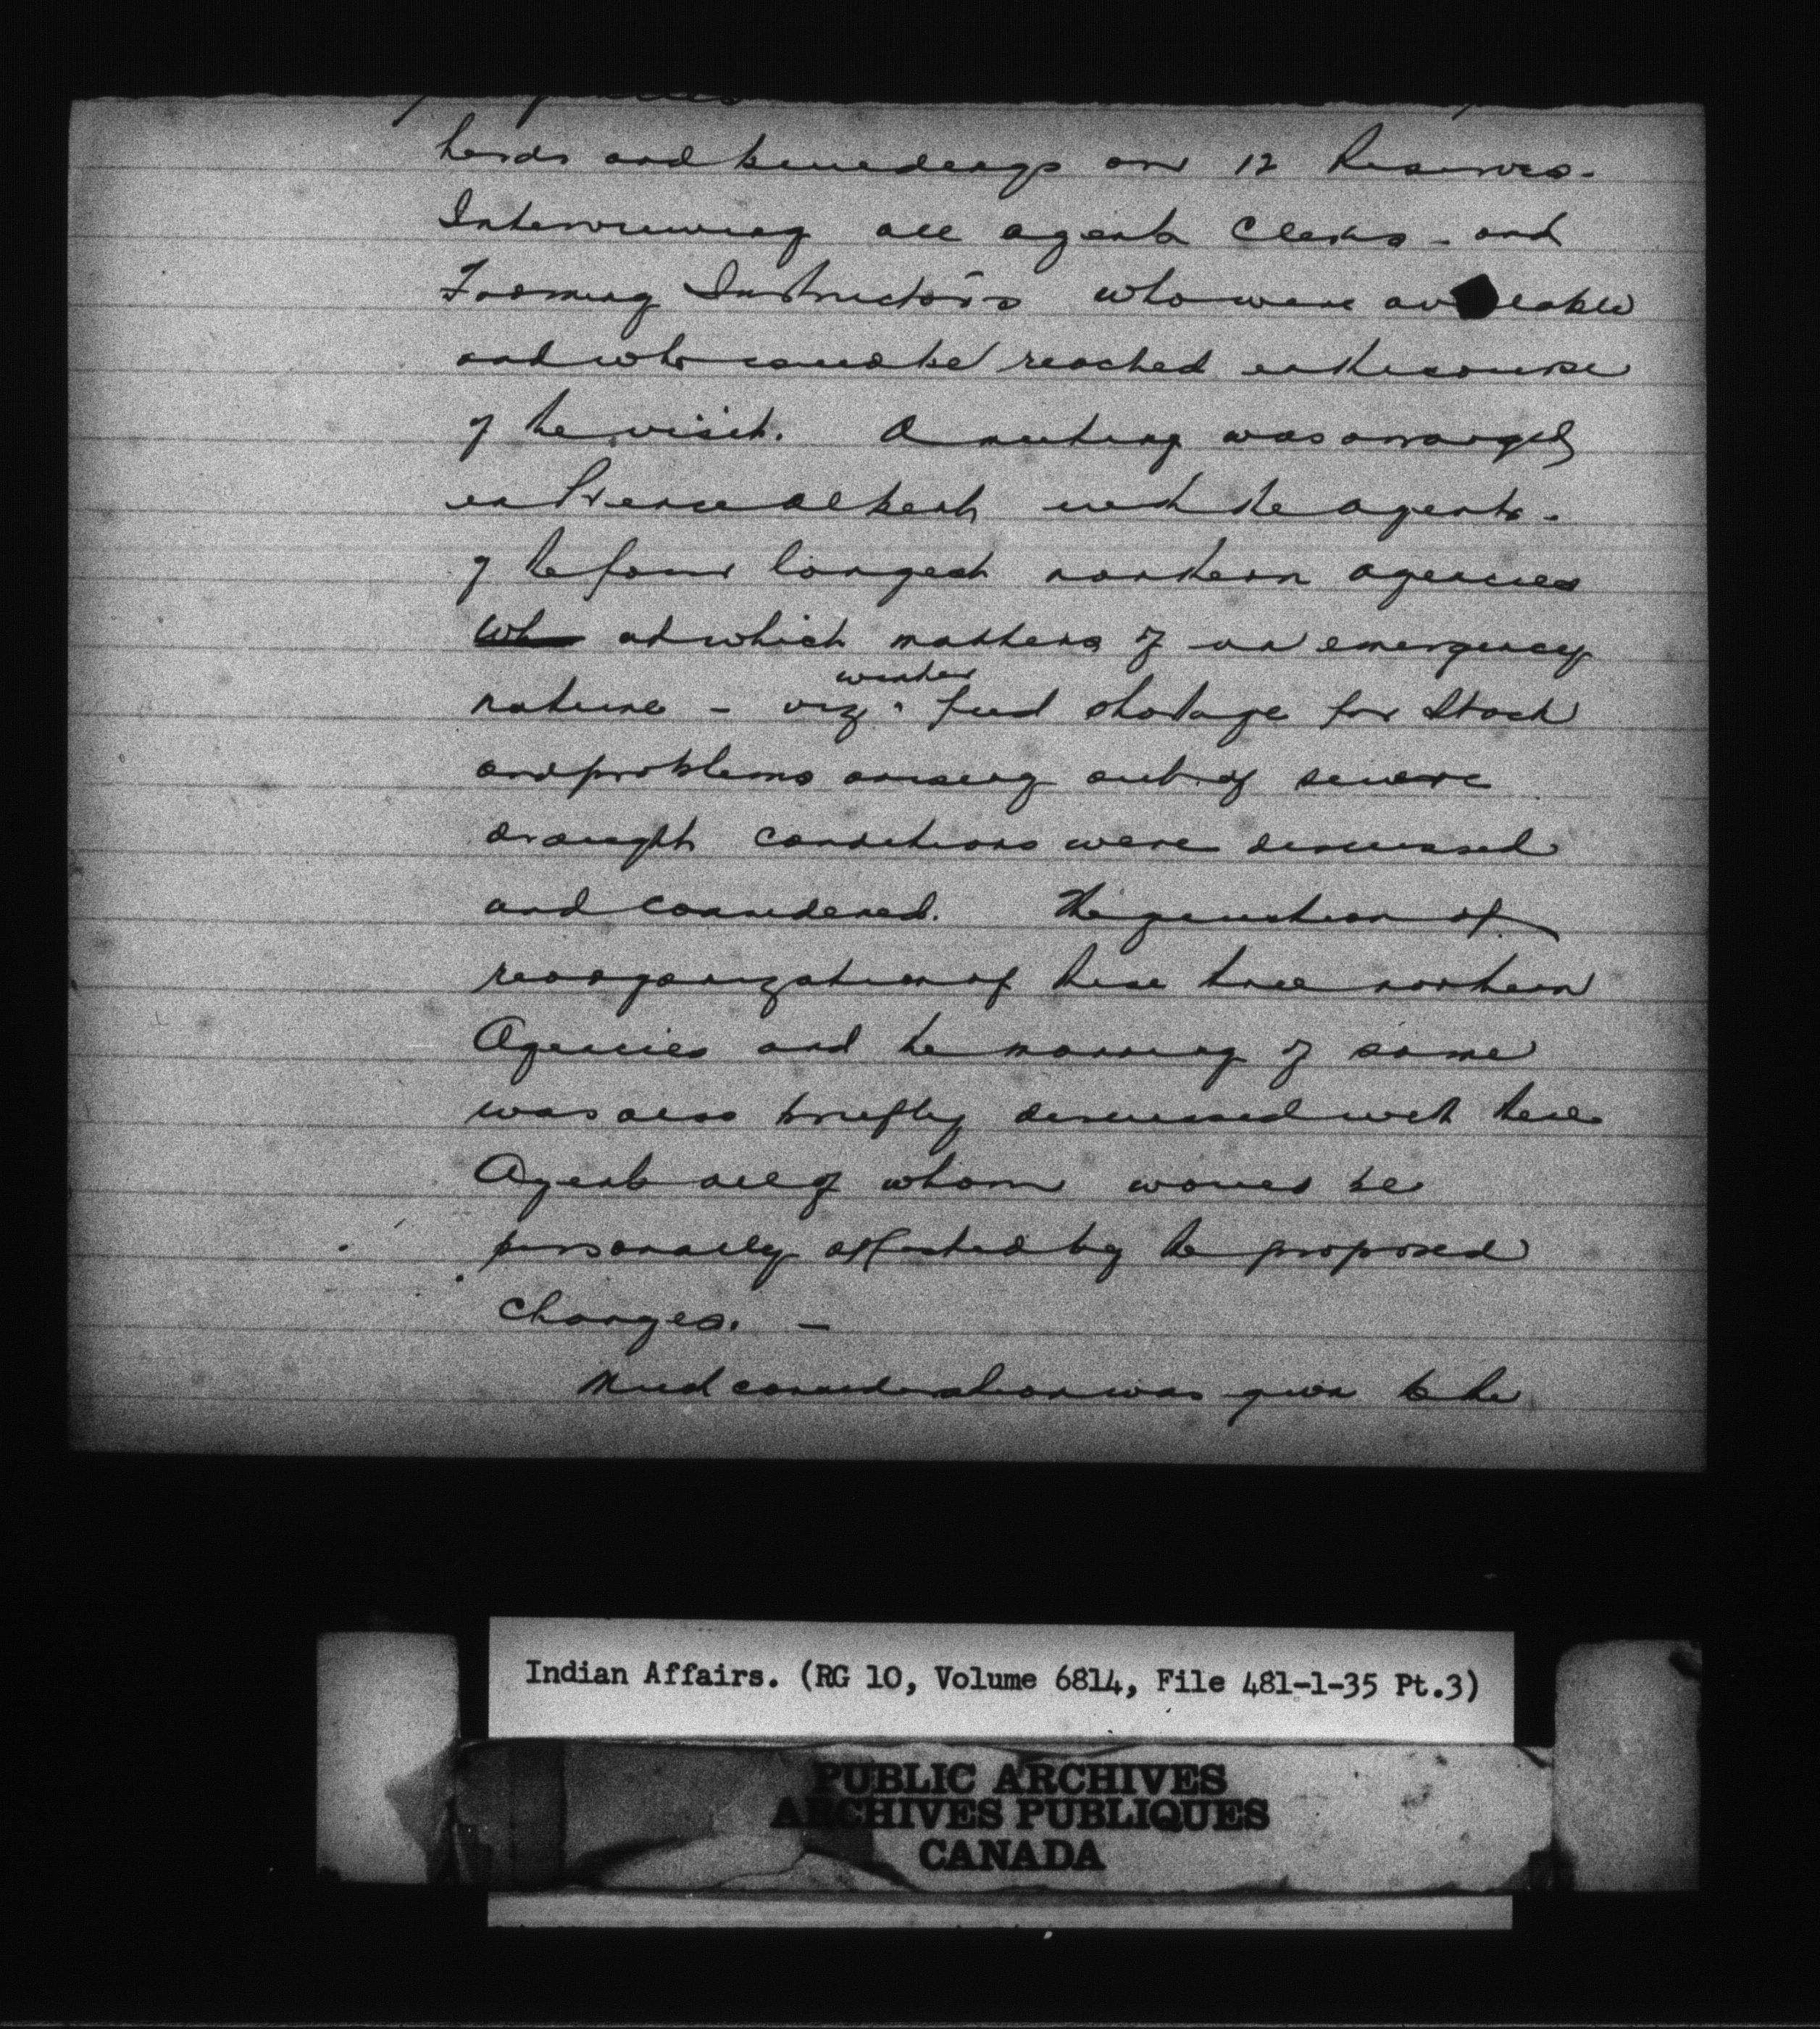 herds and buildings on 12 Reserves.
Interviewing all agents Clerks - and
Farming Instructors who were available
and who could be reached in the course
of the visit. A meeting was arranged
in Prince Albert with the agents.
of the four largest northern agencies
Wh at which matters of an emergency
winter
nature - viz. feed shotage for Stock
and problems arising out of severe
drought conditions were discussed
and considered. The question of
reorganization of these three northern
Agencies and the manning of same
was also briefly discussed with these
Agents all of whom would be
personally affected by the proposed
Changes. -
Much consideration was given to the
Indian Affairs. (RG 10, Volume 6814, File 481-1-35 Pt.3)
PUBLIC ARCHIVES
ARCHIVES PUBLIQUES
CANADA